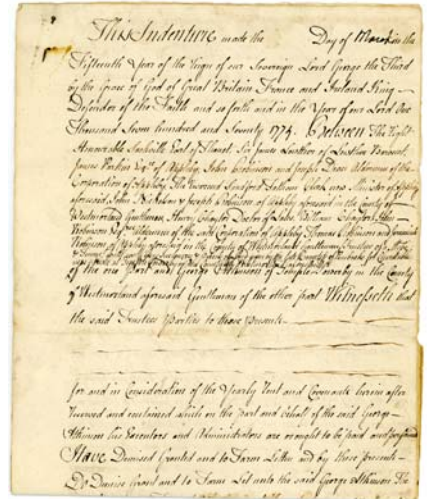 This Indenture made the Day of March in the
Fifteenth Year of the Reign of our Sovereign Lord George the Third
by the Grace of God of Great Britain France and Ireland King
Defender of the Faith and so forth and in the Year of our Lord One
Thousand Seven Hundred and Seventy 1775. Between The Right
Honourable Sackville Earl of Thanet Sir James Lowther of Lowther Baronet
James Parkin Esqr. of Appleby, John Robinson and Joseph Aldermen of the
Corporation of Appleby, The Reverend Clerk now Minister of Appleby
aforesaid, John Nicholson & Joseph Robinson of Appleby aforesaid in the County of
Westmorland Gentlemen, Henry Doctor of Laws William John
Robinson Esqrs. Aldermen of the said Corporation of Appleby Thomas and
Robinson of Appleby aforesaid in the County of Westmorland Gentlemen Trustees of a
of the one Part and George Atkinson of Temple Sowerby in the County
of Westmorland aforesaid Gentleman of the other part Witnesseth that
the said Trustees Parties to these presents
for and in Consideration of the Yearly Rent and Covenants herein after
reserved and contained which on the Part and behalf of the said George
Atkinson his Executors and Administrators are or ought to be paid and performed
Have Demised Granted and to Farm Letten and by these presents
Do Demise Grant and to Farm Let unto the said George Atkinson